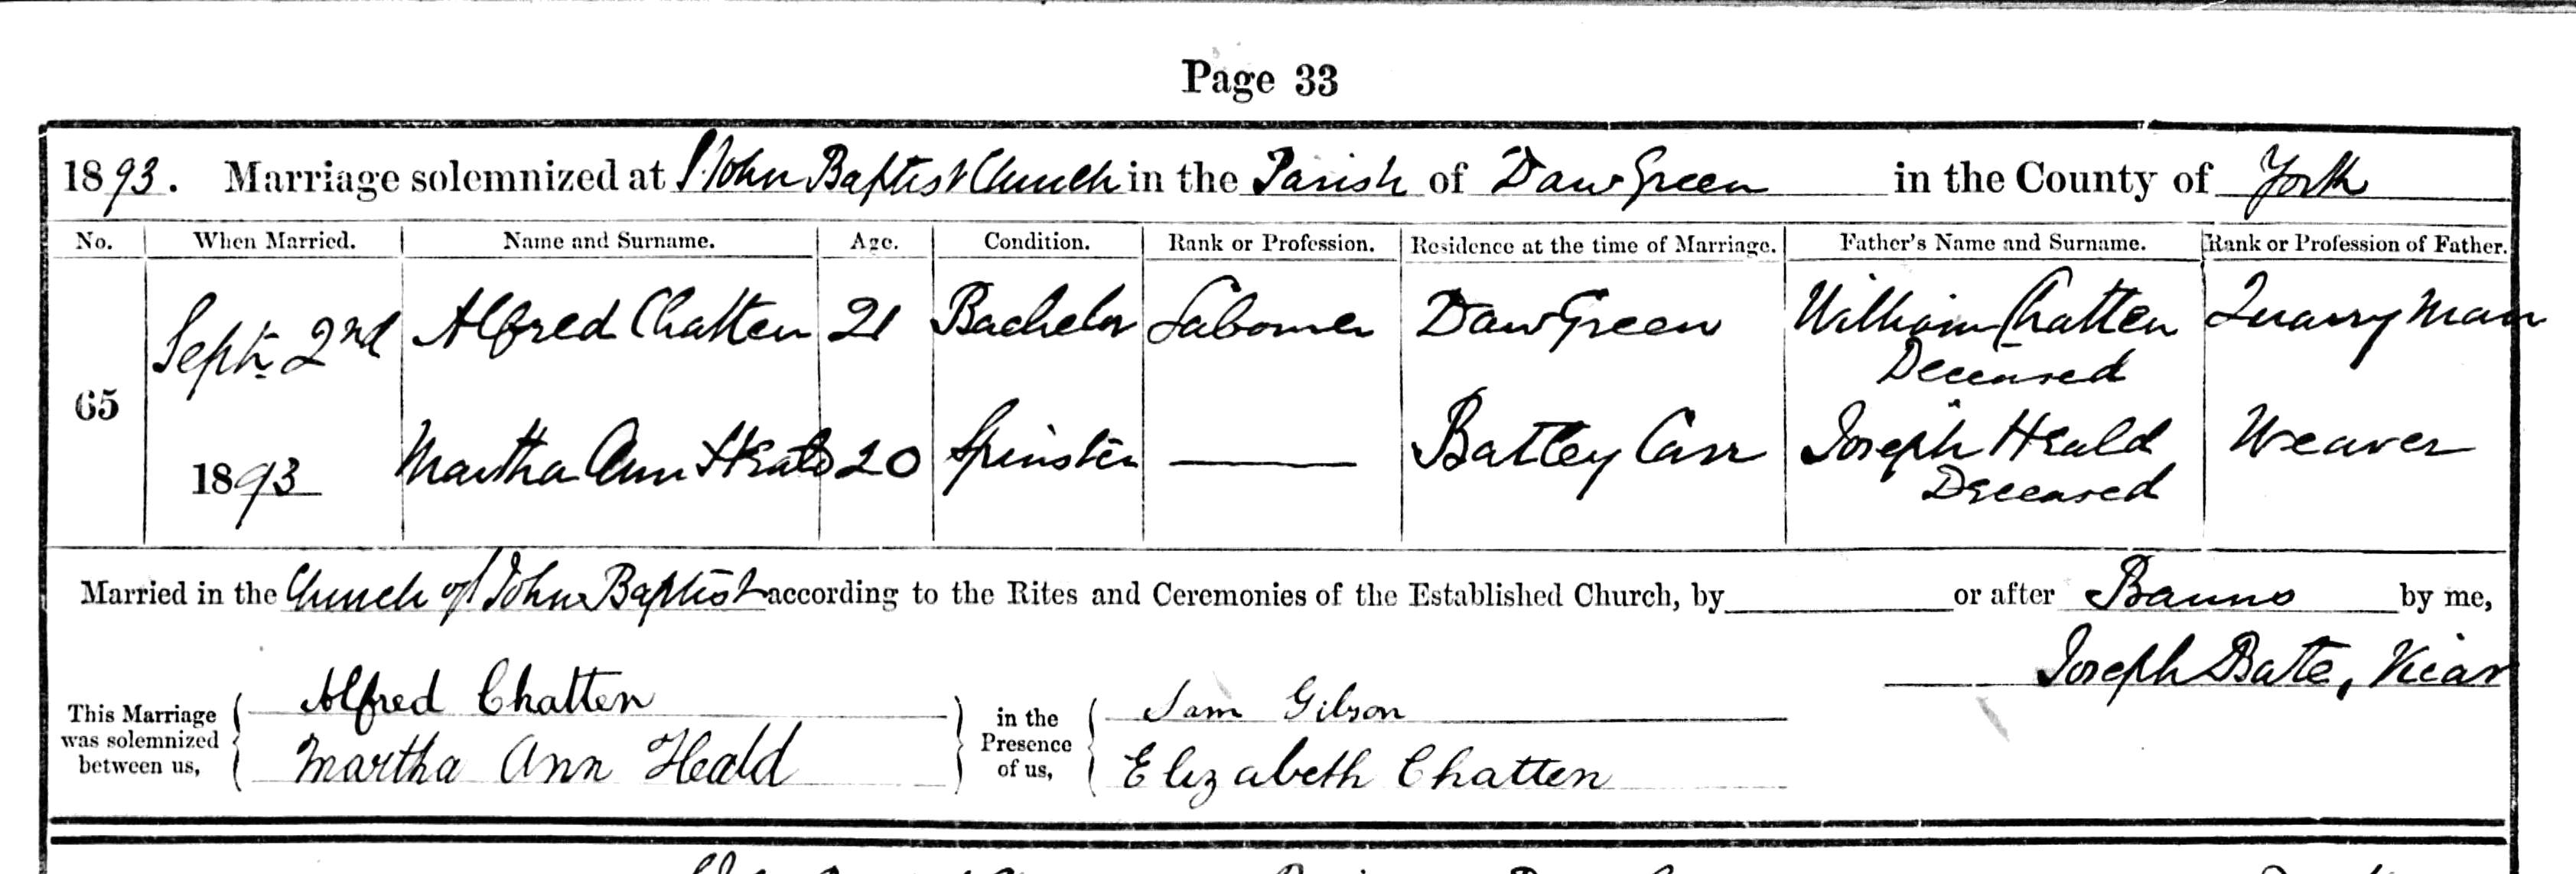 Page 33
1893. Marriage solemnized at St John Baptist Church in the Parish of Daw Green in the County of York
No. When Married. Name and Surname. Age. Condition. Rank or Profession. Residence at the time of Marriage. Father's Name and Surname. Rank or Profession of Father.
65 Septr. 2nd Alfred Chatten 21 Bachelor Labourer Daw Green William Chatten Quarry Man
Deceased
1893 Martha Ann Heald 20 Spinster Batley Carr Joseph Heald Weaver
Deceased
Married in the Church of St John Baptist according to the Rites and Ceremonies of the Established Church, by or after Banns by me,
Joseph Bate, Vicar
This Marriage was solemnized between us, Alfred Chatten
Martha Ann Heald
in the Presence of us, Sam Gibson
Elizabeth Chatten